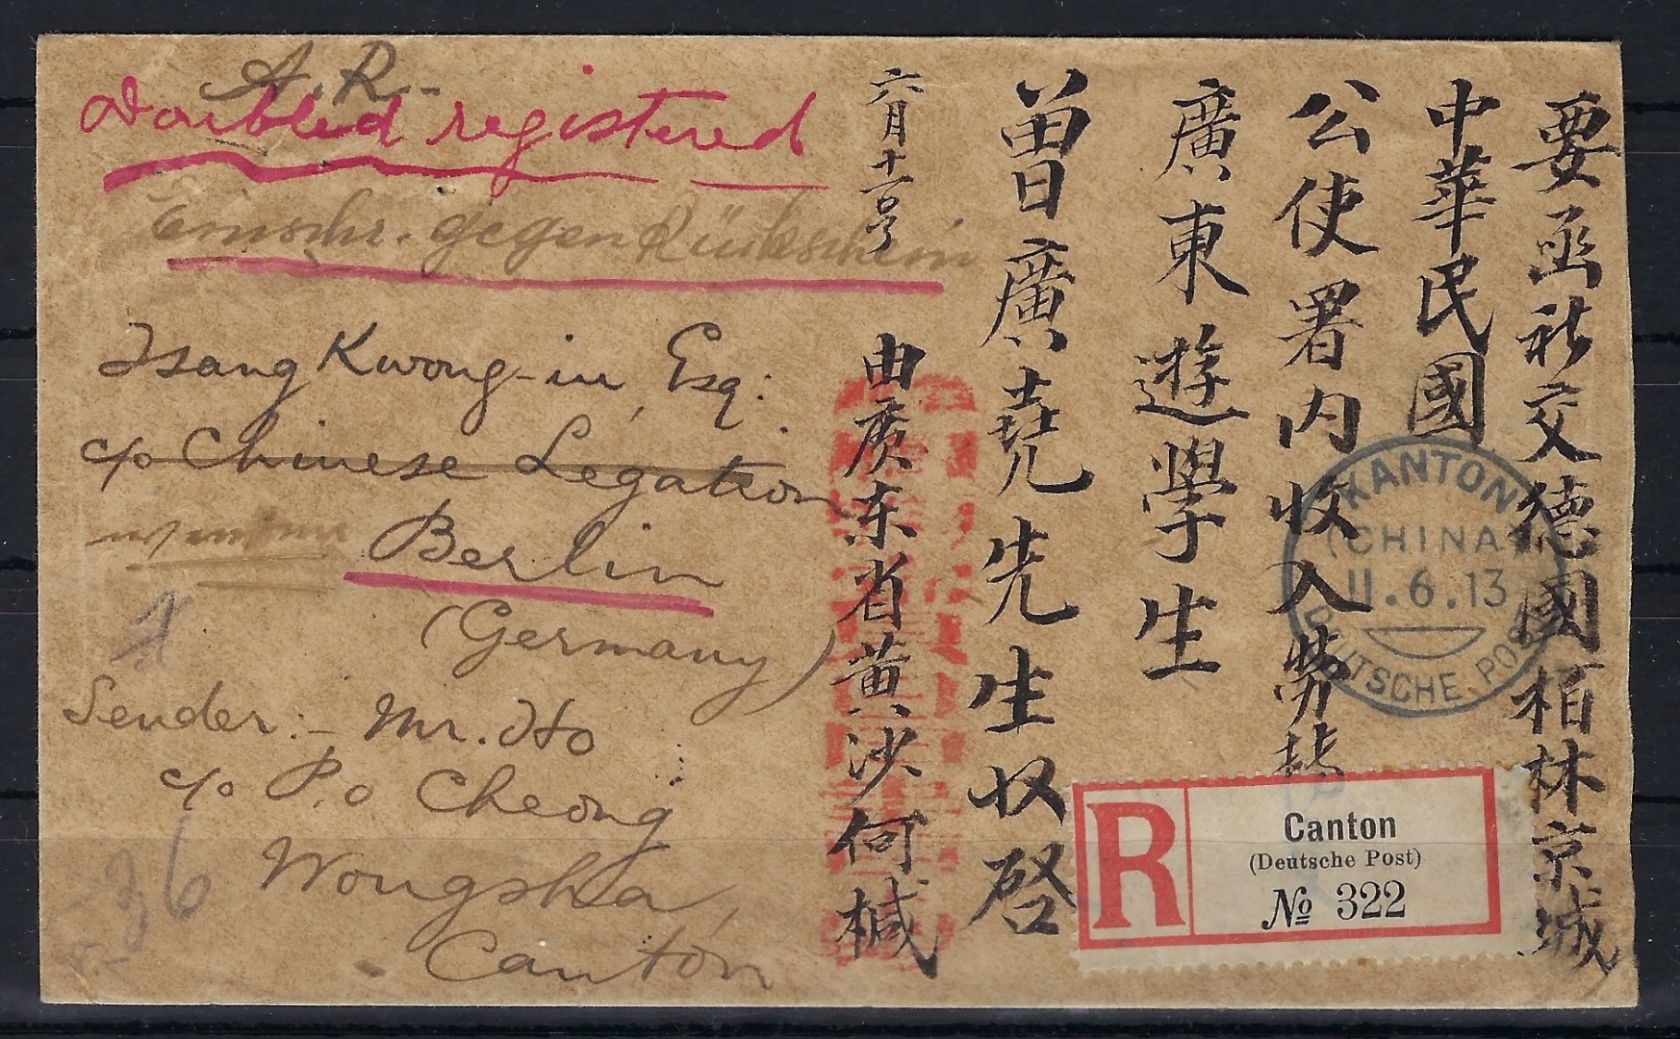 A.R.-
Doubled registered
Einschr. gegen Rückschein
Tsang Kwong-iu, Esq:
c/o Chinese Legation
Berlin
(Germany)
Sender:- Mr. Ho
c/o Po Cheong
Wongsha,
Canton
36
要函祈交德國柏林京城
中華民國
公使署内收入勞轉
廣東遊學生
曾廣堯先生收啓
六月十一号
由廣东省黄沙何椷
KANTON
(CHINA)
11.6.13
DEUTSCHE POST
R
Canton
(Deutsche Post)
№ 322